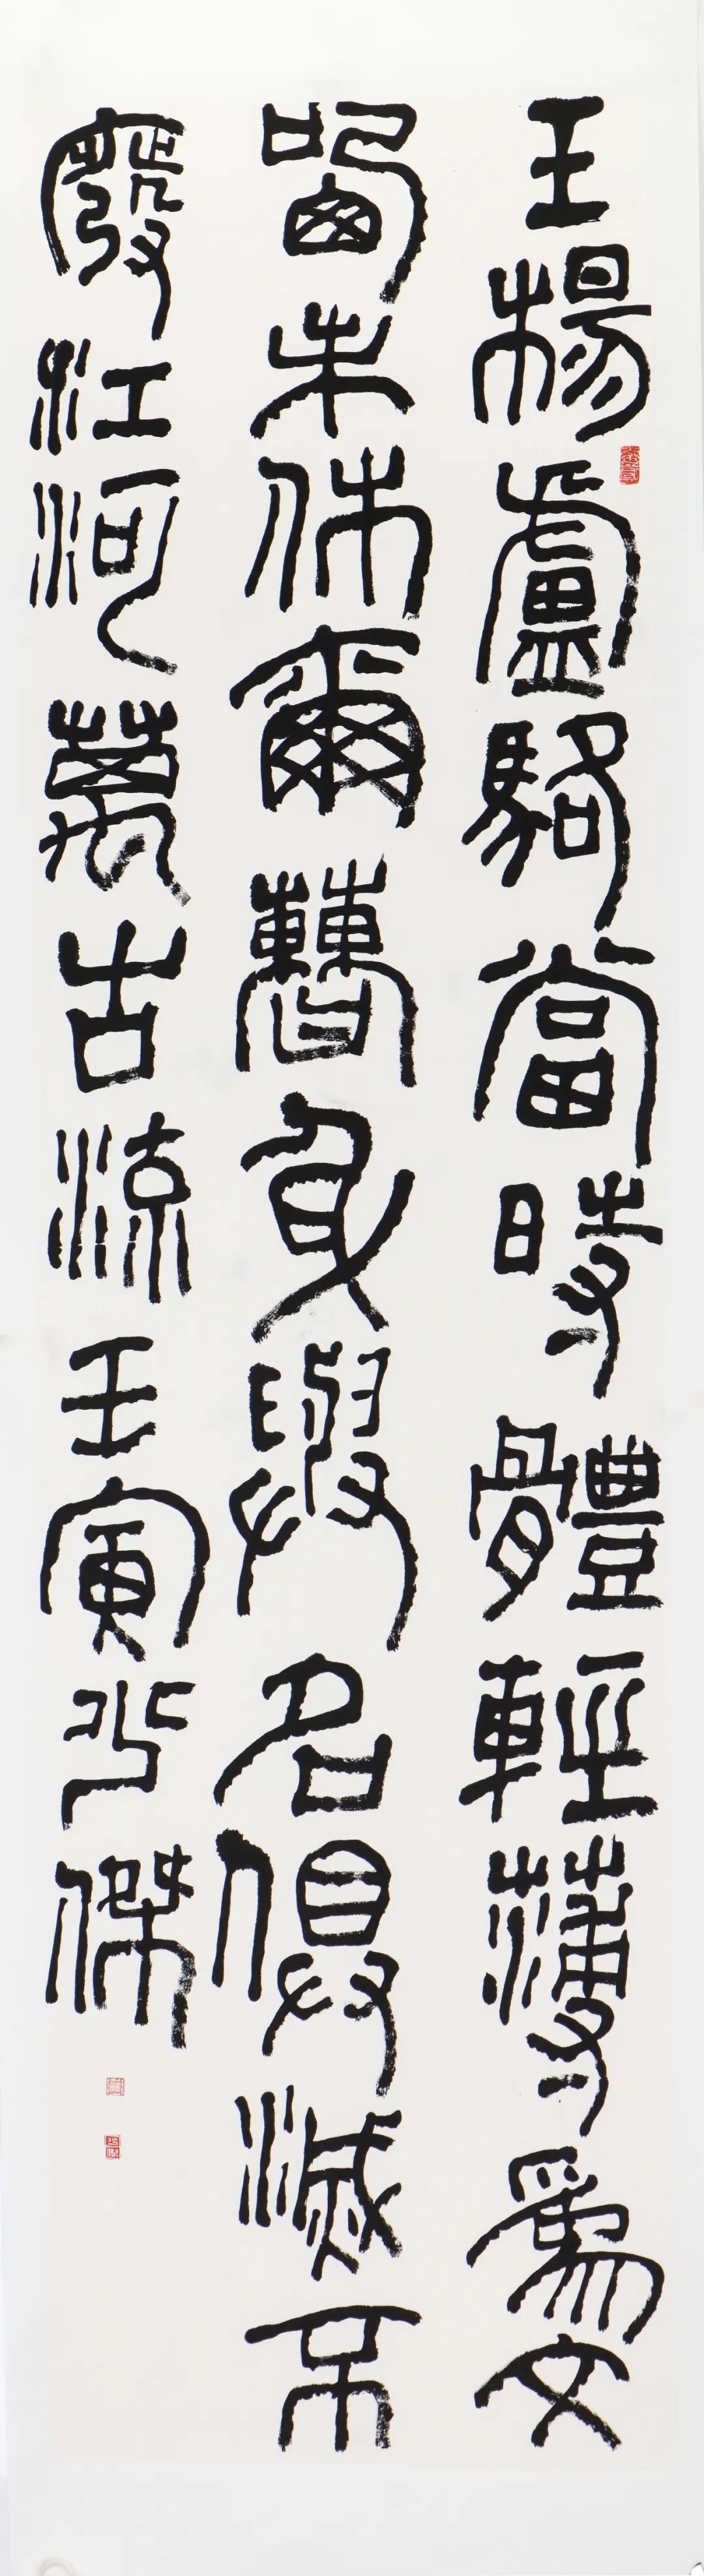 王楊盧駱當時體輕薄爲文
哂未休爾曹身與名俱滅不
廢江河萬古流壬寅傑